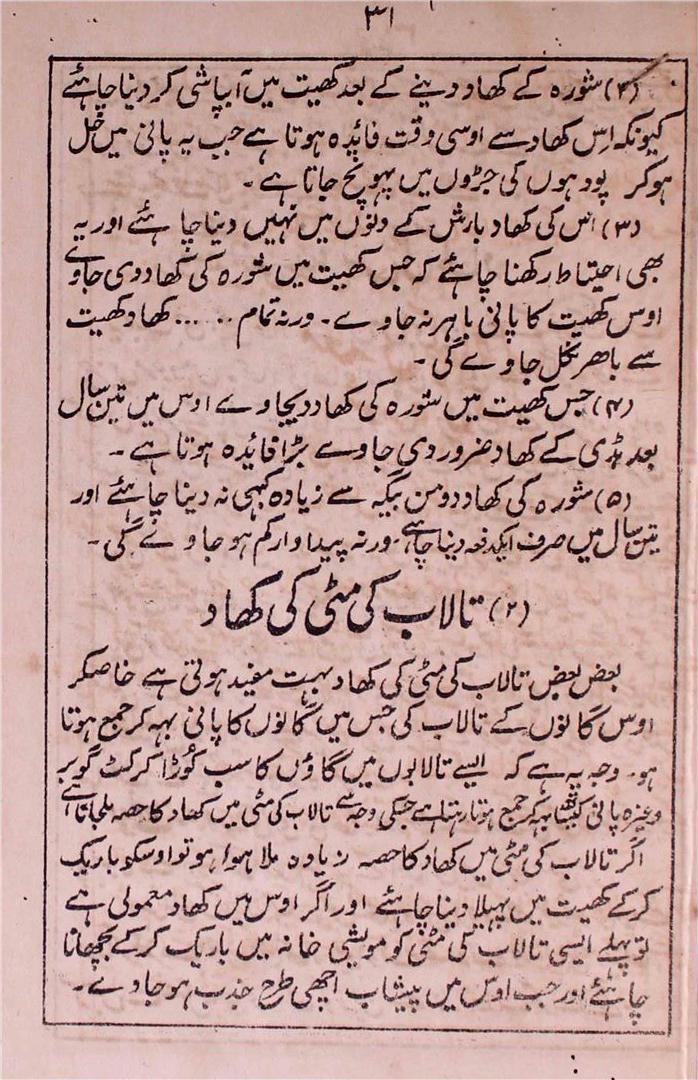 ۳۱
(۲) شورہ کے کھاد دینے کے بعد کھیت میں آبپاشی کر دینا چاہئے
کیونکہ اِس کھاد سے اوسی وقت فائدہ ہوتا ہے جب یہ پانی میں حل
ہوکر پودہوں کی جڑوں میں پہونچ جاتا ہے۔
(۳) اس کی کھاد بارش کے دنوں میں نہیں دینا چاہئے اور یہ
بھی احتیاط رکھنا چاہئے کہ جس کھیت میں شورہ کی کھاد دی جاوے
اوس کھیت کا پانی باہر نہ جاوے۔ ورنہ تمام ..... کھاد کھیت
سے باھر نکل جاوے گی۔
(۴) جس کھیت میں شورہ کی کھاد دیجاوے اوس میں تین سال
بعد ہڈی کے کھاد ضرور دی جاوے بڑا فائدہ ہوتا ہے۔
(۵) شورہ کی کھاد دو من بیگہ سے زیادہ کبہی نہ دینا چاہئے اور
تین سال میں صرف ایکدفعہ دینا چاہئے۔ ورنہ پیداوار کم ہو جاوے گی۔
(۲) تالاب کی مٹی کی کھاد
بعض بعض تالاب کی مٹی کی کھاد بہت مفید ہوتی ہے خاصکر
اوس گانوں کے تالاب کی جس میں گانوں کا پانی بہہ کر جمع ہوتا
ہو۔ وجہ یہ ہے کہ ایسے تالابوں میں گاؤں کا سب کوڑا کرکٹ گوبر
وغیرہ پانی کیساتھ بہہ کر جمع ہوتا رہتا ہے جسکی وجہ سے تالاب کی مٹی میں کھاد کا حصہ ملجاتا ہے
اگر تالاب کی مٹی میں کھاد کا حصہ زیادہ ملا ہوا ہو تو اوسکو باریک
کرکے کھیت میں پہیلا دینا چاہئے اور اگر اوس میں کھاد معمولی ہے
تو پہلے ایسی تالاب کی مٹی کو مویشی خانہ میں باریک کرکے بچھانا
چاہئے اور جب اوس میں پیشاب اچھی طرح جذب ہو جاوے۔